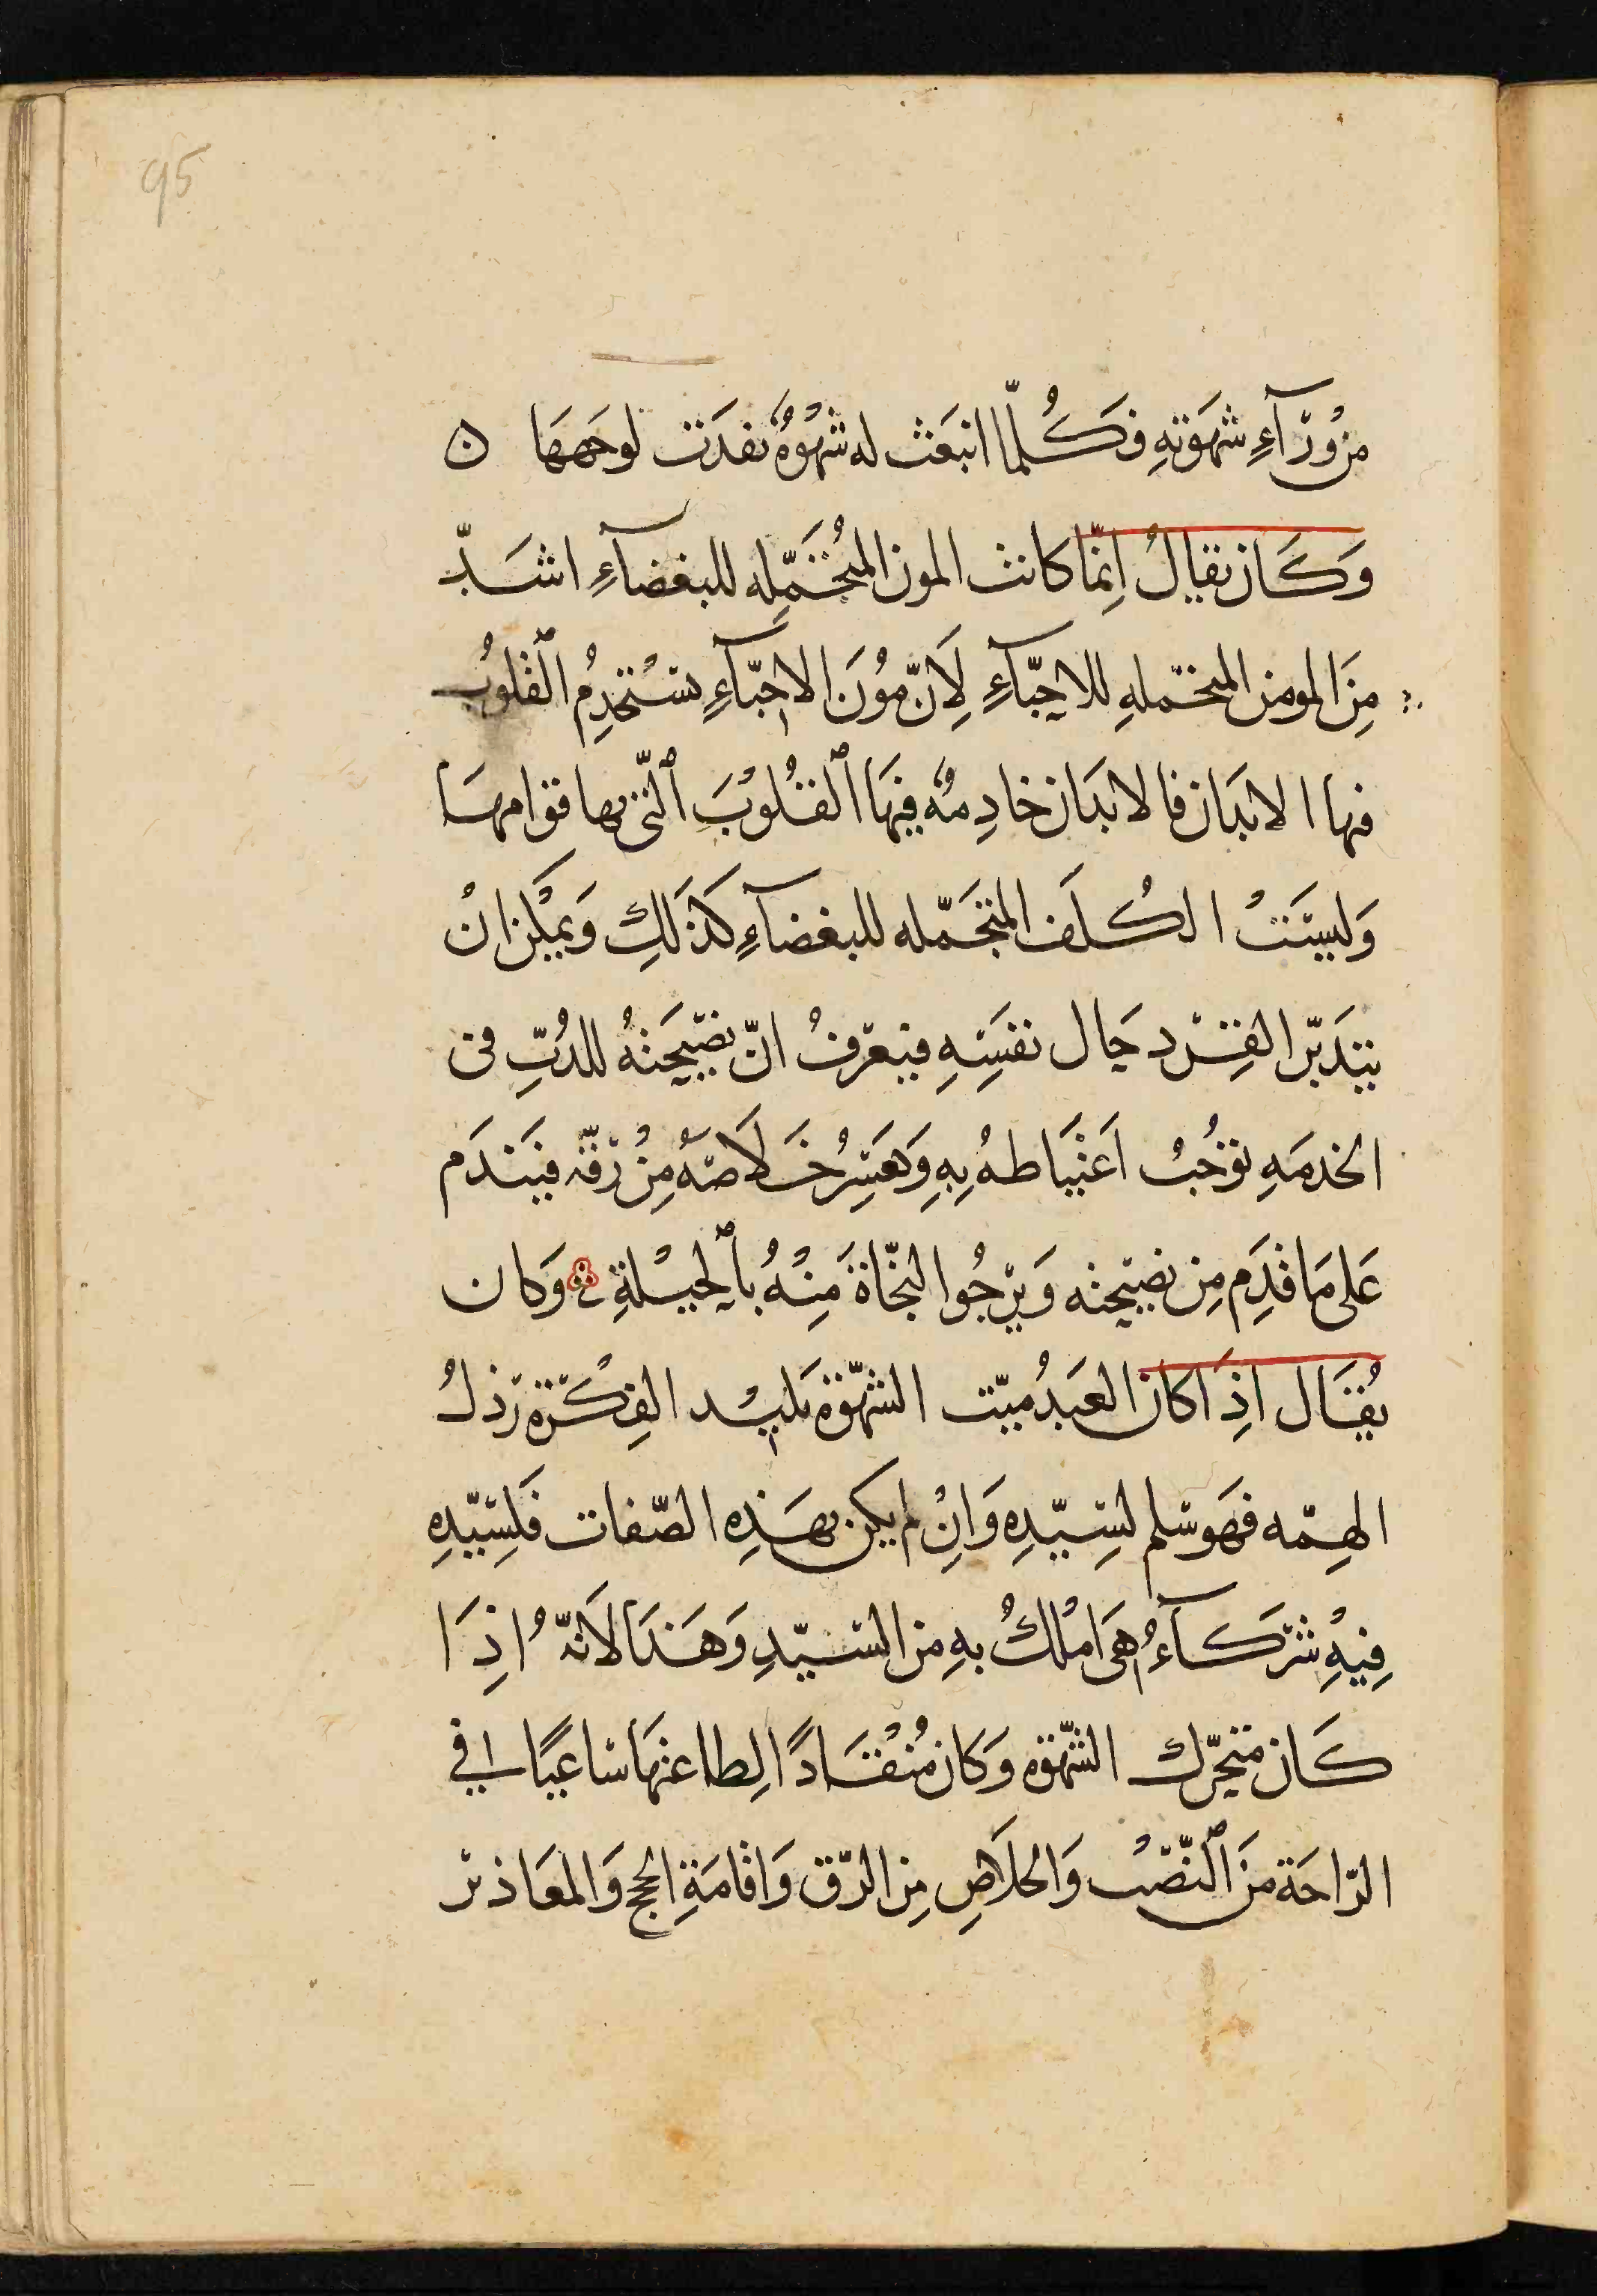 95
من وَرَآءِ شهَوَتهِ فَكُلّما انبَعَثت له شهْوُةٌ نفدَت لوجَهَهَا ن
وَكَان يقالُ اِنمّا كانت المون المُتَحَمِّله للبغضآءِ اشَدّ
مِنَ المومن المتحمّلهِ للاحِبّآءِ لِاَنّ مُوَن الاحِبّآءِ تسْتُخدِمُ ٱلقلوُب
فيها الابدَان فالابدَان خادِمةٌ فيهَا ٱلقلُوْبَ ٱلتّى بها قوامهَا
وَليسَتْ الكُلَف المتحَمّله للبغضآءِ كذَلكِ وَيمْكن انْ
يتدَبّر القِرْد حَال نفسَهِ فيعَرفُ انّ نصِيحَتهُ للدُبِّ فى
الخدمَهِ توُجبُ اَغتِبَاطهُ بهِ وَتعَسِرُ خَلاَصَهُ مِنْ رقّه فيَندَم
عَلى مَا قدَم مِن نصِيحته وَيرْجُوا النجّاةَ مِنْهُ بٱلحيْلةِ وَكان
يُقَال اذِاَ كان العَبدُ ميّت الشهّوَة بليْد الفِكْرَة رَذلُ
الهِمّه فهَو سَلم لسَِيّدِه وَانِْ لم يكن بهَذِه الصّفات فَلِسَيّدِه
فِيهْ شرَكآءُ هىَ امْلكُ بهِ من السَيّدِ وَهَذَا لاَنّهُ اذَِا
كَان متحَرّك الشهّوَة وَكان مُنْقَادًا لِطاعتهَا سَاعيًا فى
الرّاحَة منَ ٱلنّصَبْ وَالخلاَصِ مِن الرّق وَاقامَةِ الحجج وَالمعَاذير